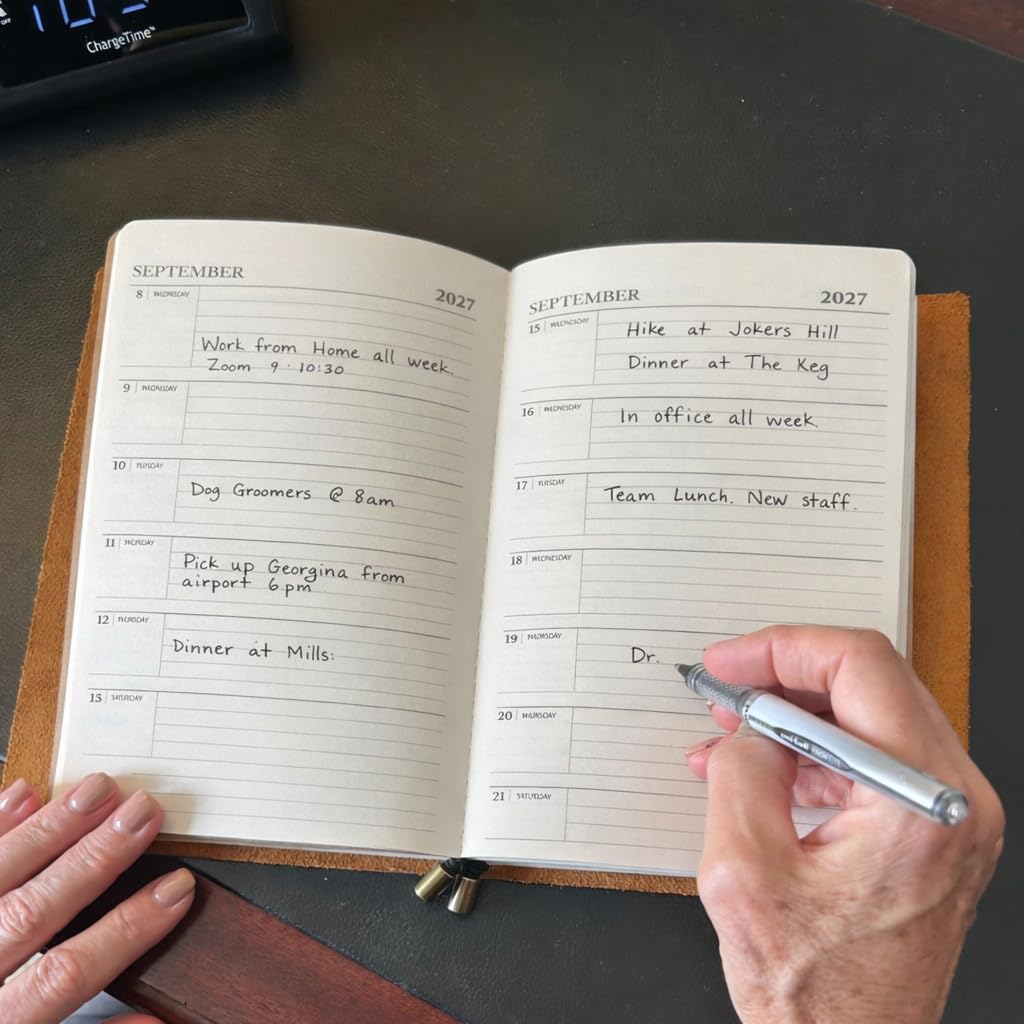 OFF
ChargeTime™
SEPTEMBER
2027
8
Work from Home all week.
Zoom 9 - 10:30
9
10
Dog Groomers @ 8am
11
Pick up Georgina from
airport 6pm
12
Dinner at Mills:
13 SATURDAY
SEPTEMBER 2027
15 WEDNESDAY
Hike at Jokers Hill
Dinner at The Keg
16 WEDNESDAY
In office all week.
17
Team Lunch. New staff.
18 WEDNESDAY
19
Dr.
20
21
uni-ball